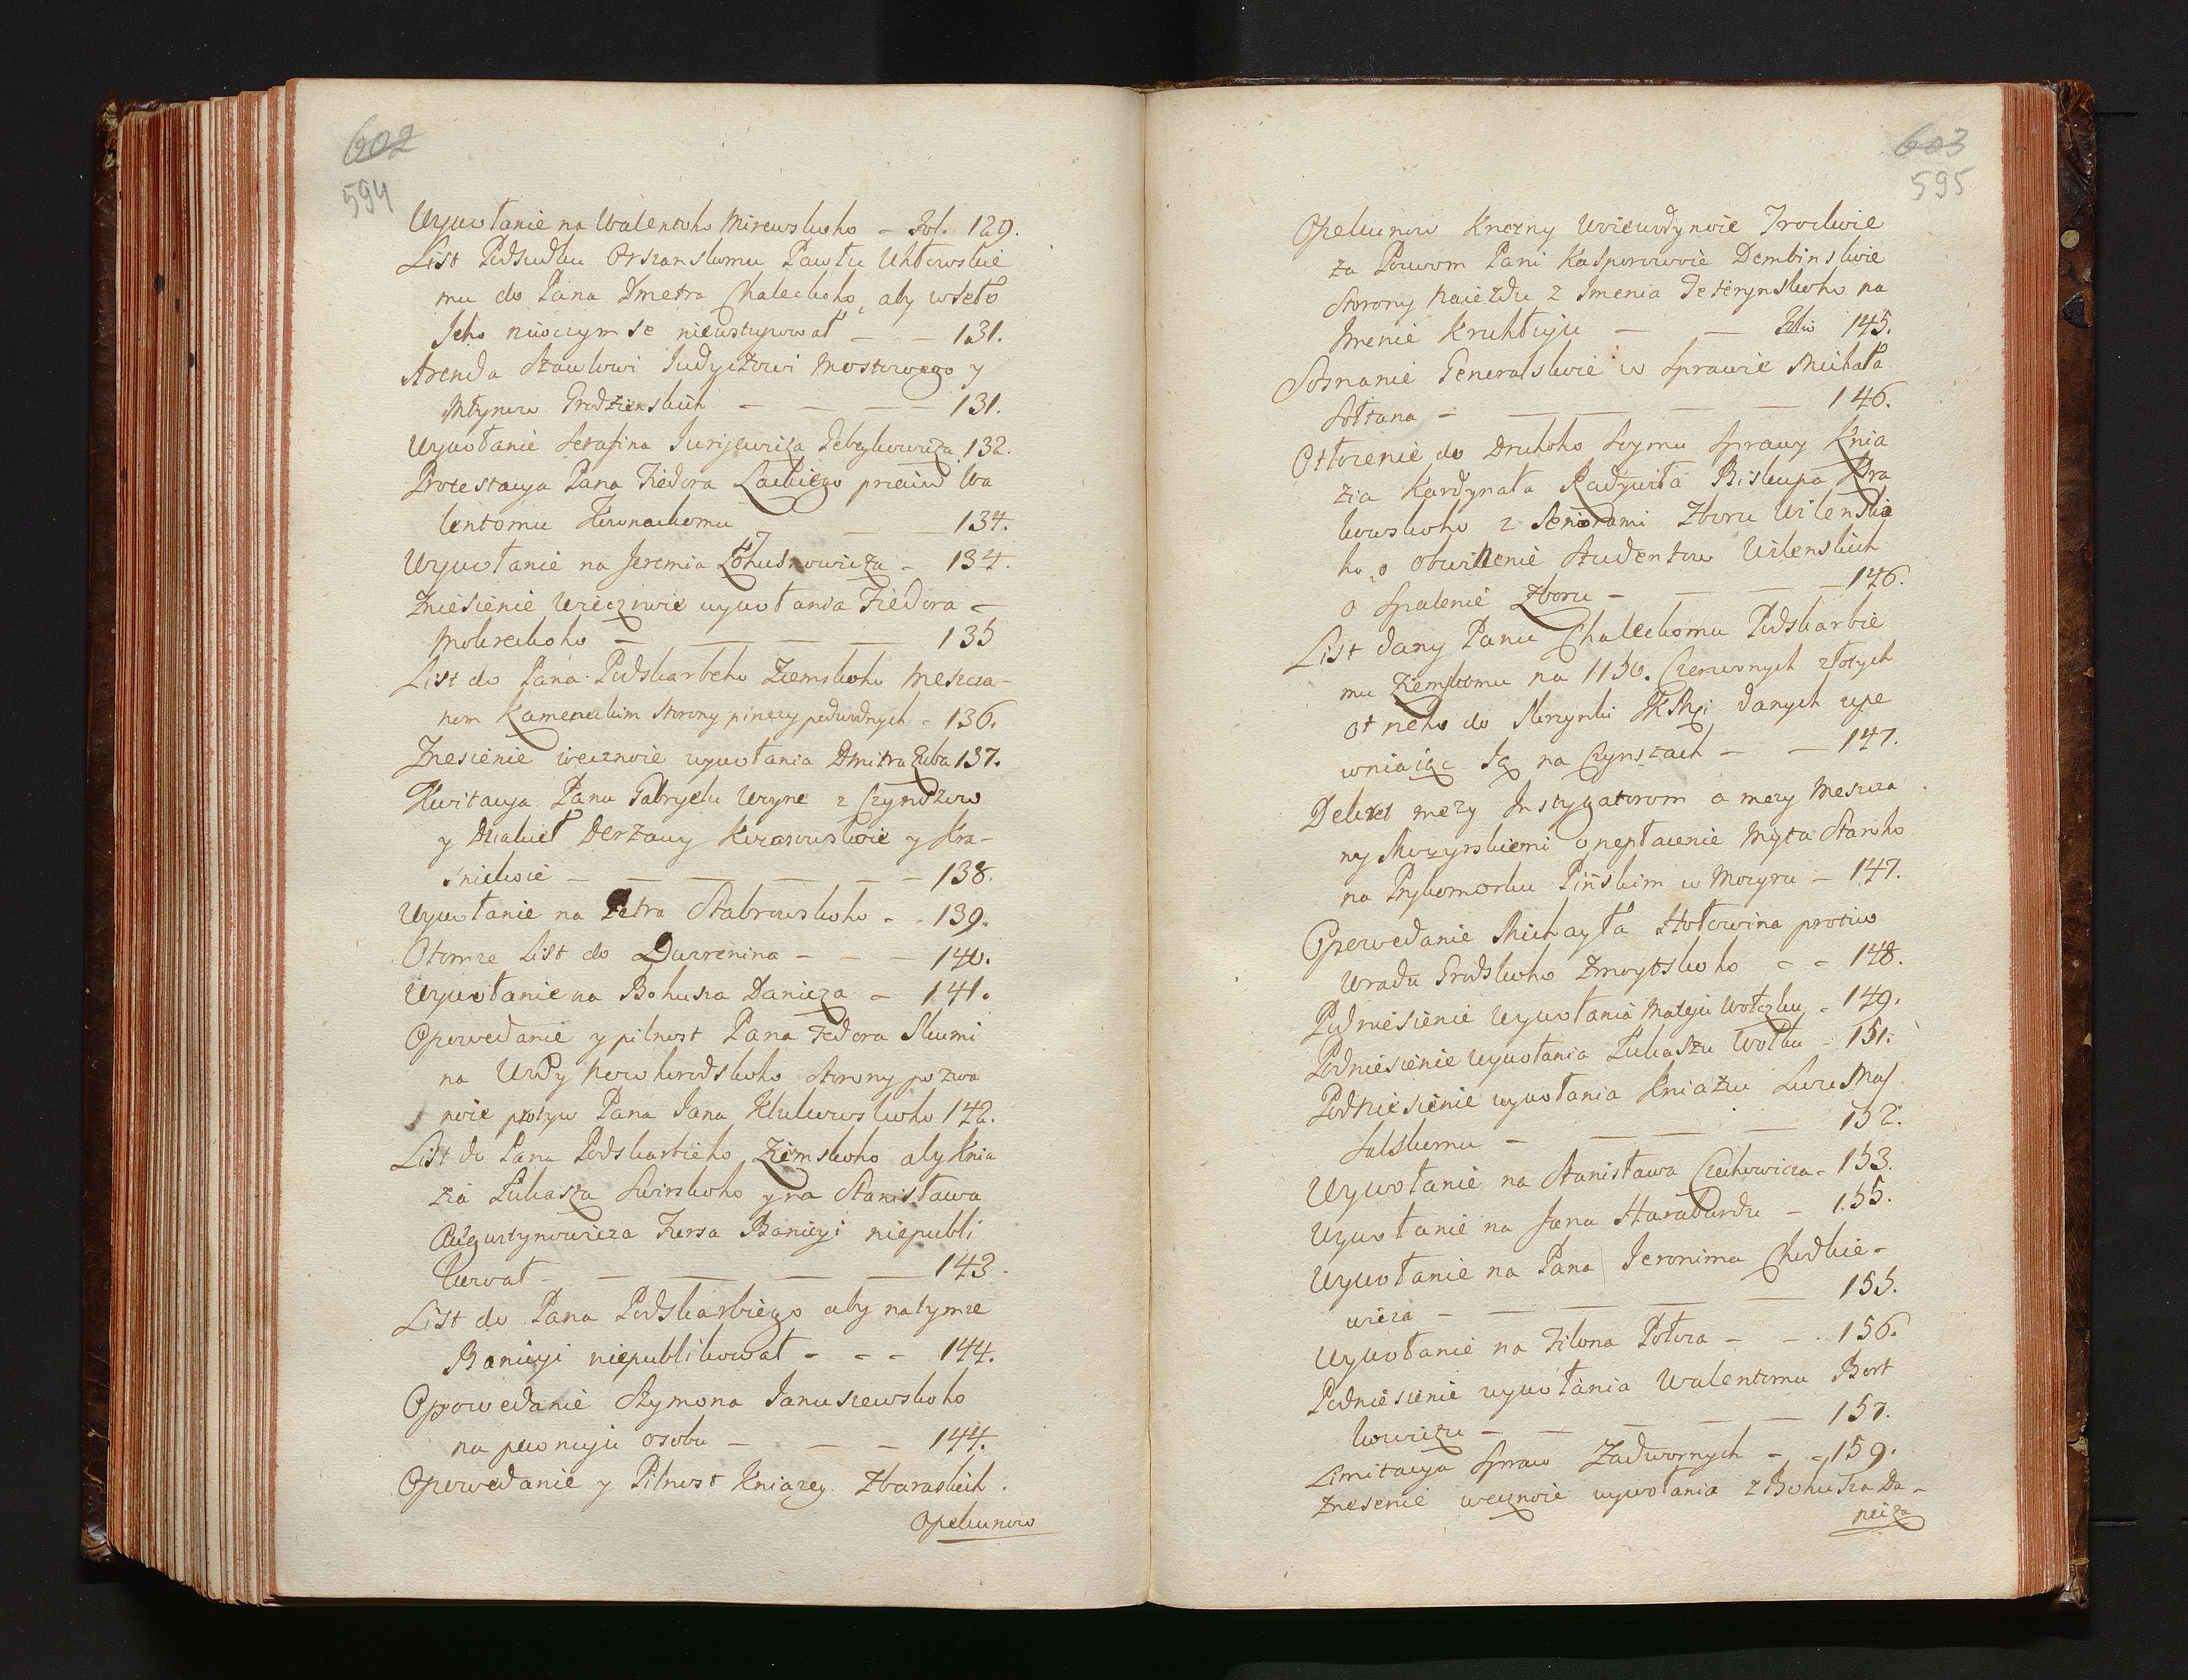 602
594
Wywołanie na Walentoho Mirewskoho – Fol. 129.
List Podsudku Orszanskomu Pawłu Uhtowskie
mu do Pana Dmetra Chaleckoho, aby wseło
Jeho niwoczym se niewstupował – – 131.
Arenda Szawłowi Judyczowi Mostowego y
Młynow Grodzienskich – – – 131.
Wywołanie Serafina Jurijewicza 132.
Protestacya Pana Fiedora Lackiego preciw Wa
lentomu – 134.
Wywołanie na Jeremia – 134.
Zniesienie wiecznoie wywołania Fiedora –
Mokreckoho – – – – 135
List do Pana Podskarbeho Ziemskoho Meszcza-
nom Kameneckim storony pinezy podwodnych – 136.
Znesienie wecznoie wywołania Dmitra Zuba 137.
Kwitacya Panu Gabryelu Woyne z Czynszow
y Dziakieł Derżawy y Kra-
snickoie – – – – – – 138.
Wywołanie na Petra Stabrowskoho – – 139.
Otomze List do – – – 140.
Wywołanie na Bohusza Danicza – 141.
Opowedanie y pilnost Pana Fedora Skumi
na Wody Nowhorodskoho storony pozwa
noie protyw Pana Jana Klukowskoho 142.
List do Pana Podskarbieho Ziemskoho aby Knia
zia Łukasza Swirskoho y na Stanisława
Augustynowicza Fursa Banicyi niepubli
kował – – – – – 143.
List do Pana Podskarbiego aby natymze
Banicyi niepublikował – – – 144.
Opowedanie Szymona Januszewskoho
na pewnuju osobu – – – 144.
Opowedanie y Pilnost Kniazey Zbaraskich.
Opekunow
603
595
Opekunow Knezny Woiewodynoie Trockoie
za Pozwom Pani Kasporowoie Dembinskoie
storony naiezdu z Imenia na
Imenie Kruhłuju – – Folio 145.
Soznanie Generalskoie w sprawie Michała
Sołtana – – – – 146.
Otłozenie do Druhoho Soymu Sprawy Knia
zia Kardynała Radziwiła Biskupa Kra
kowskoho z Seniorami Zboru Wilenskie
ho, o obwinenie Studentow Wilenskich
o Spalenie Zboru – – – 146.
List dany Panu Chaleckomu Podskarbie
mu Ziemskomu na 1150. Czerwonych złotych
ot neho do Skrzynki danych upe
wniaiąc Ją na Czynszach – – 147.
Dekret mezy Instygatorom a mezy Meszcza
ny Mozyrskiemi o nepłacenie Myta Staroho
na Prykomorku Pińskim w Mozyru – 147.
Opowedanie Michayła Hołowina protiw
Uradu Grodskoho Zmoytskoho – – 148.
Podniesienie wywołania Mateju Wołczku – 149.
Podniesienie wywołania Łukaszu Wołku – 151.
Podniesienie wywołania Kniaziu Lwu Mas
salskomu – – – – 152.
Wywołanie na Stanisława Czechowicza – 153.
Wywołanie na Jana Haraburdu – 155.
Wywołanie na Pana Jeronima Chodkie-
wicza – – – – – 155.
Wywołanie na Filona Połoza – – 156.
Podniesienie wywołania Walentomu Bort
kowiczu – – – – – 157.
Limitacya Spraw Zadwornych – – 159.
Znesenie wecznoie wywołania z Bohusza Da-
nicza